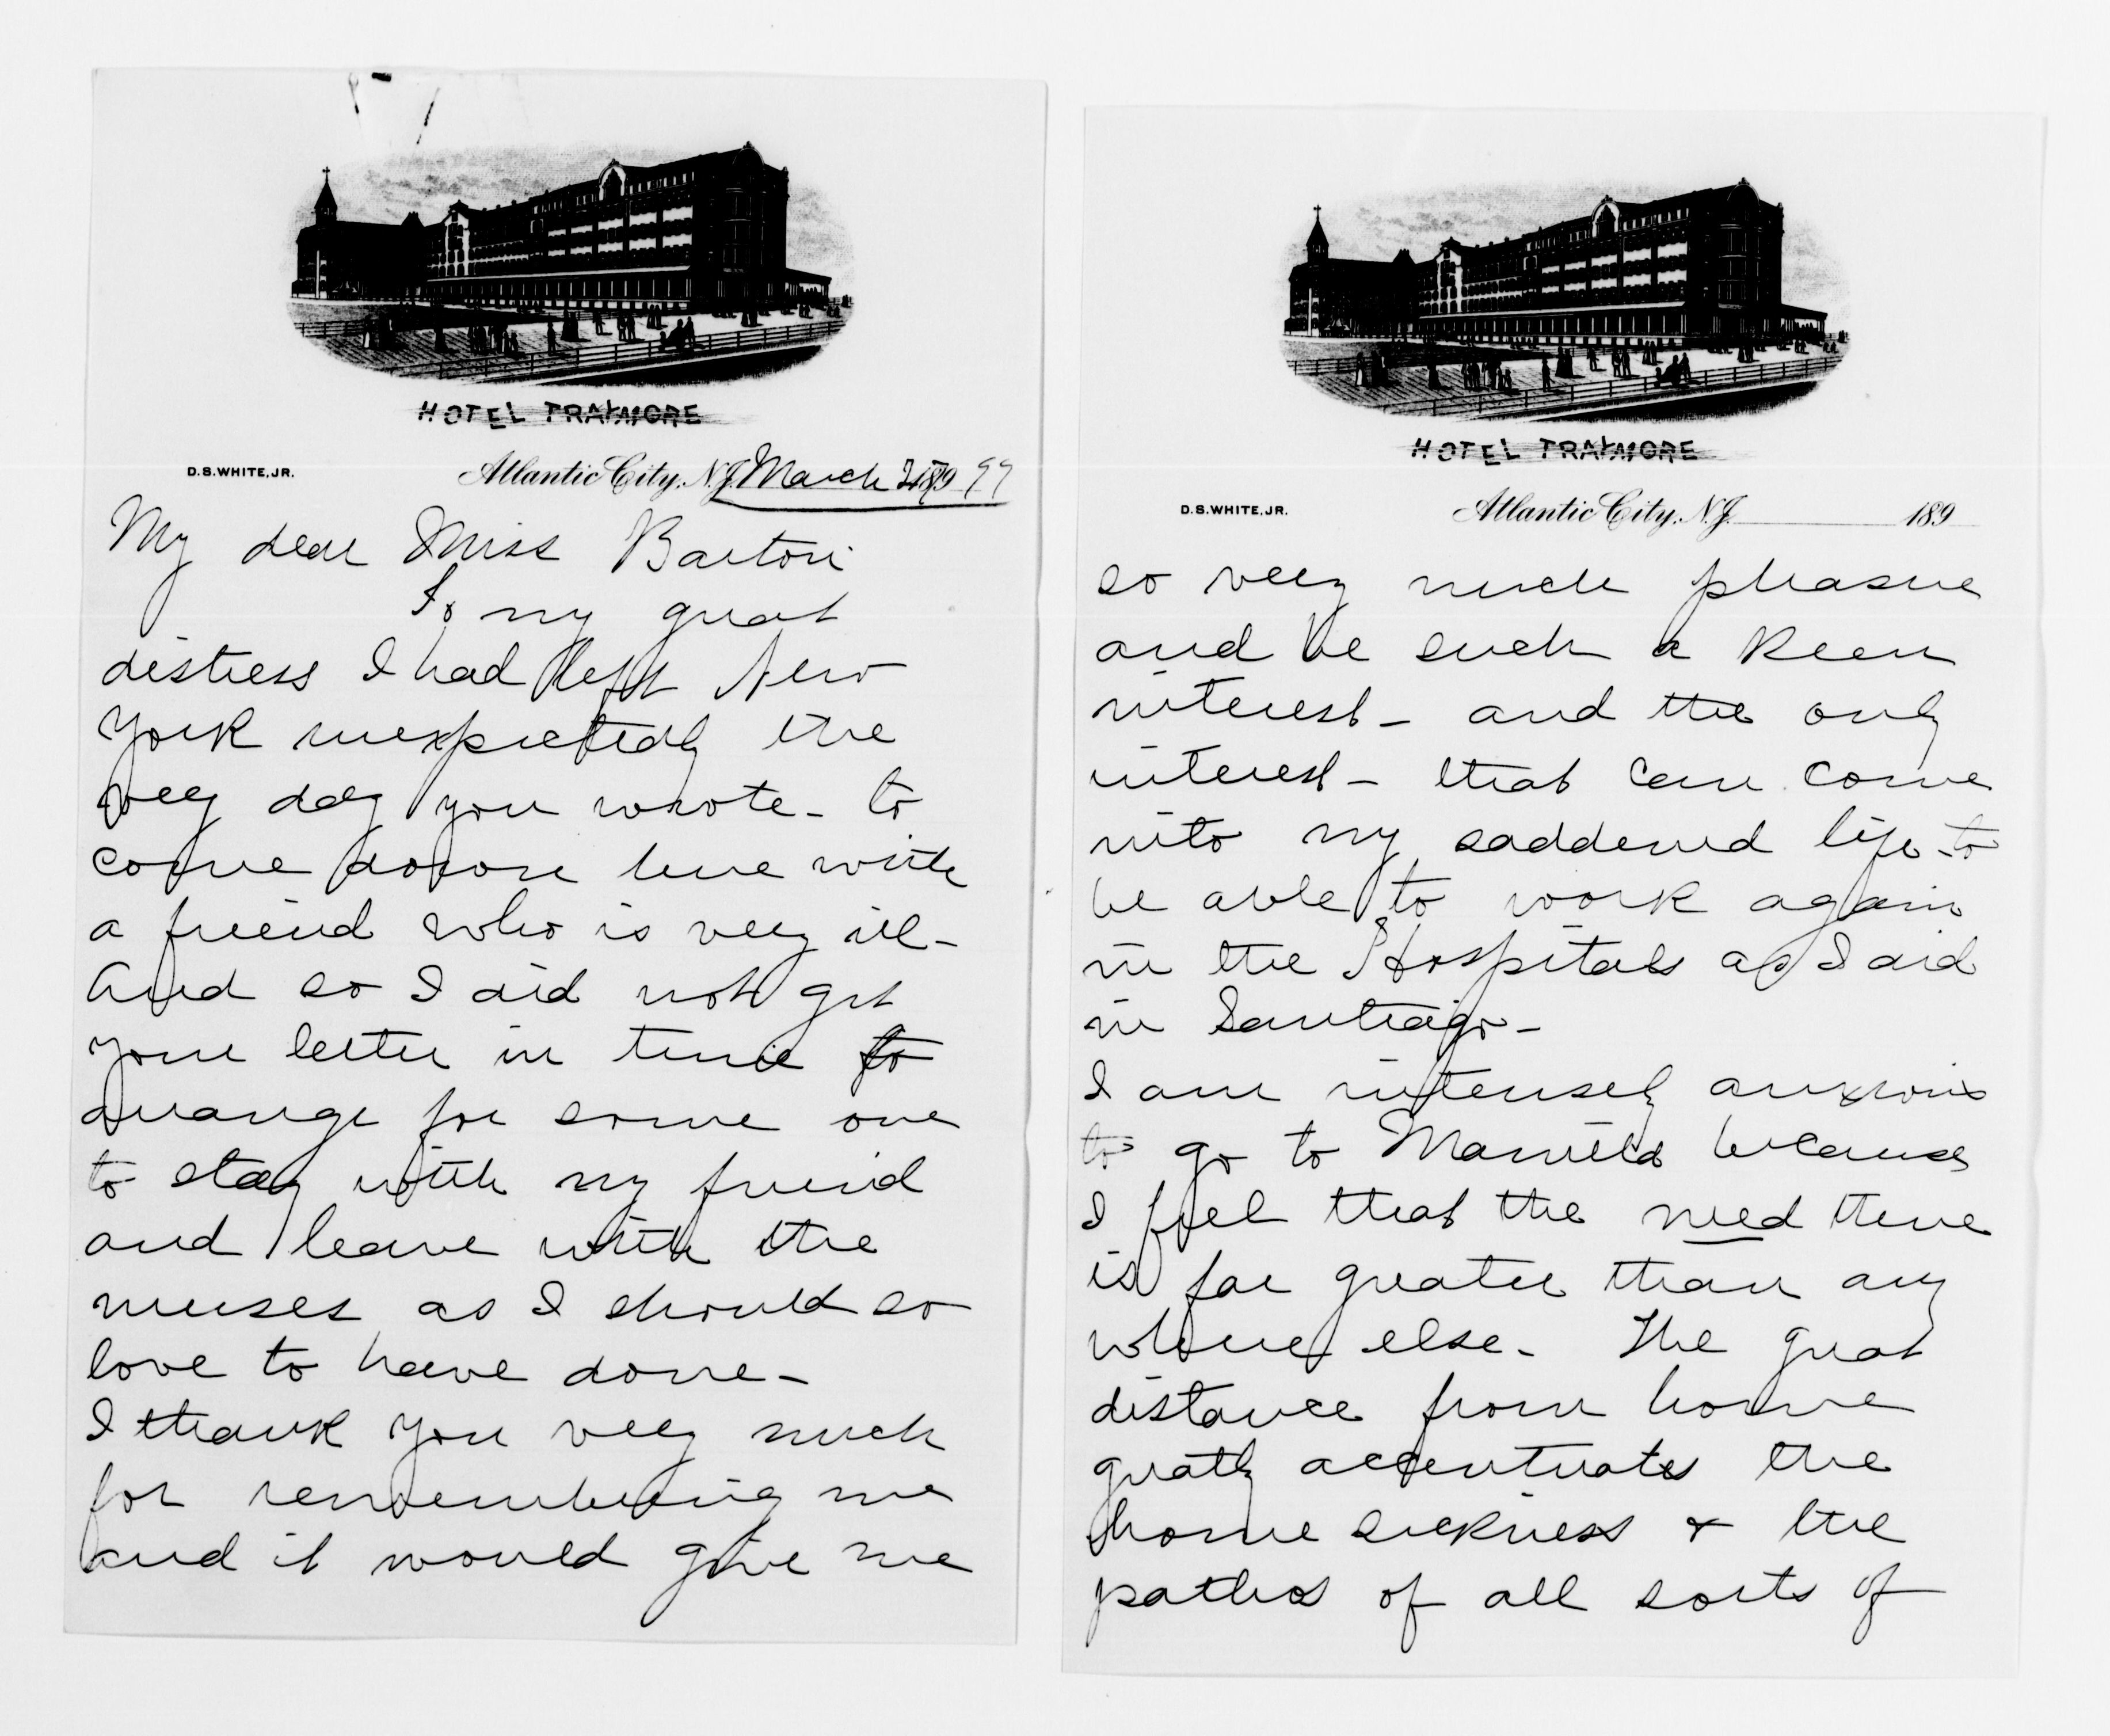 HOTEL TRAYMORE
D.S.WHITE, JR. Atlantic City, N.J. March 189 99
My dear Miss Barton
To my great
distress I had left New
York unexpectedly the
very day you wrote - to
come down here with
a friend who is very ill -
And so I did not get
your letter in time to
arrange for some one
to stay with my friend
and leave with the
nurses as I should so
love to have done -
I thank you very much
for remembering me
and it would give me
HOTEL TRAYMORE
D.S.WHITE, JR. Atlantic City, N.J. 189
so very much pleasure
and be such a keen
interest - and the only
interest - that can come
into my saddened life - to
be able to work again
in the Hospitals as I did
in Santiago -
I am intensely anxious
to go to Manila because
I feel that the need there
is far greater than any
where else - The great
distance from home
greatly accentuates the
home sickness & the
pathos of all sorts of